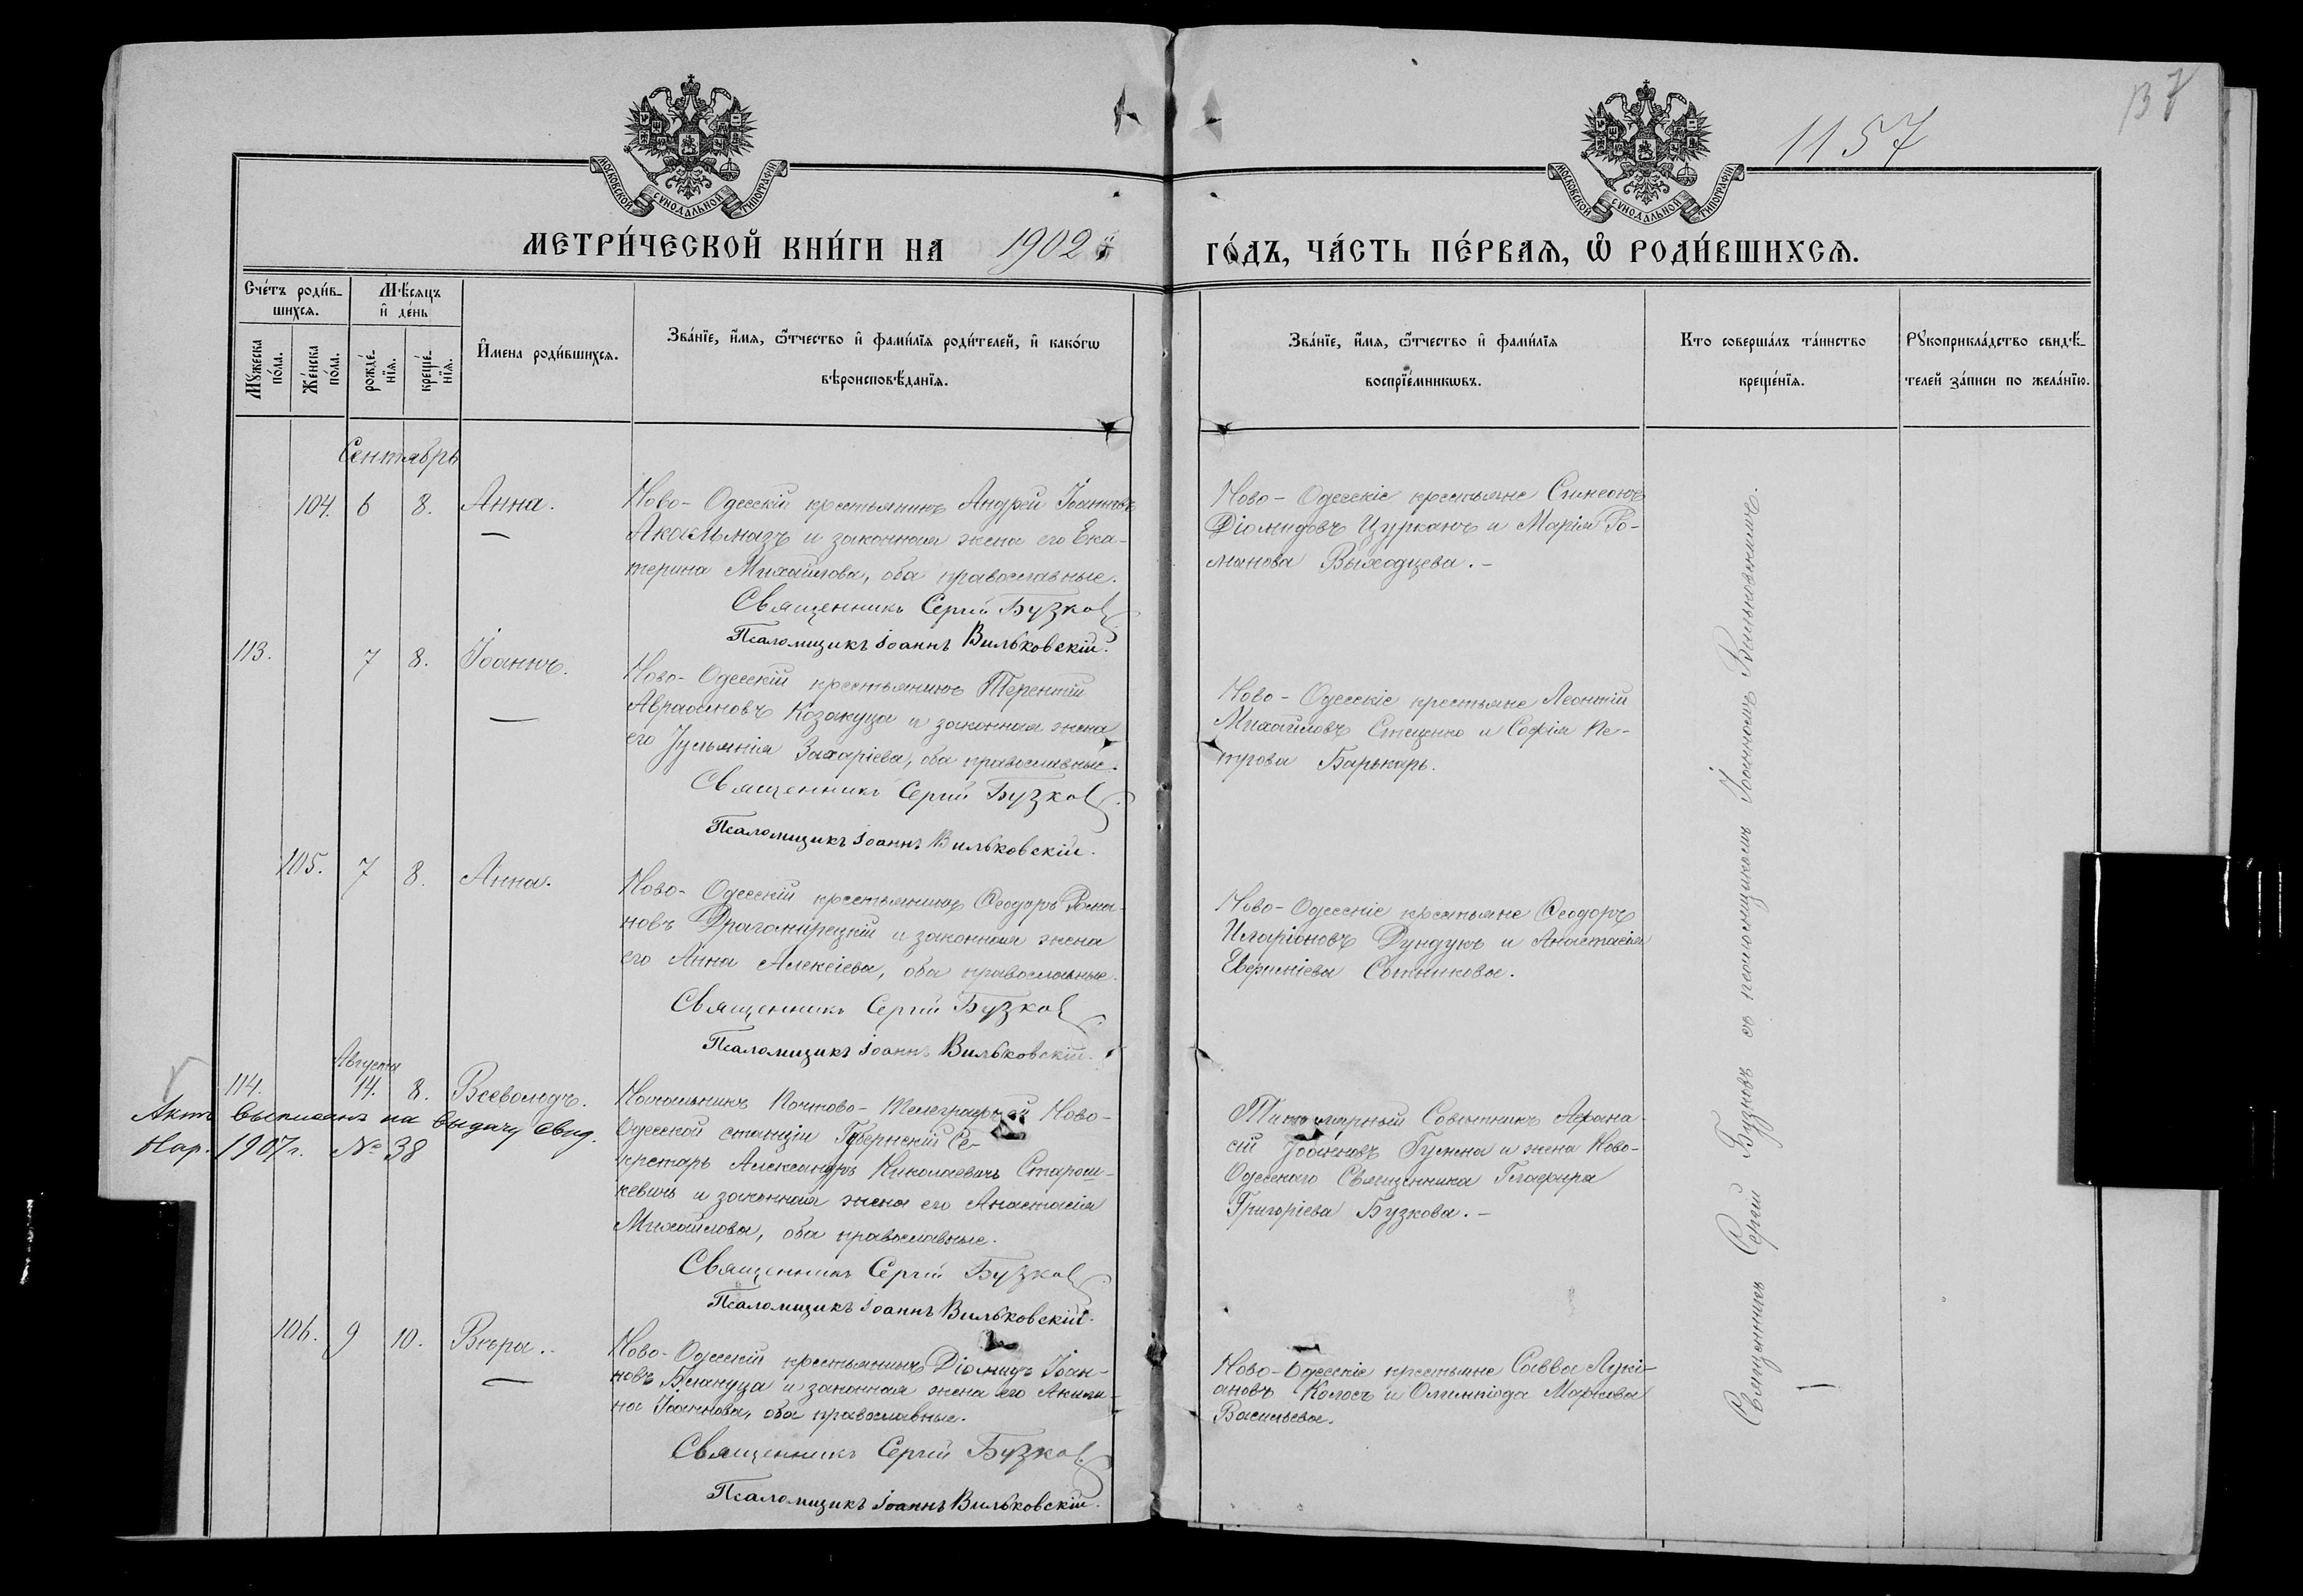 1157
137
МОСКОВСКОЙ СѴНОДАЛЬНОЙ ТИПОГРАФІИ
МОСКОВСКОЙ СѴНОДАЛЬНОЙ ТИПОГРАФІИ
МЕТРИ́ЧЕСКОЙ КНИ́ГИ НА 1902 й
ГО́ДЪ, ЧА́СТЬ ПЕ́РВАѦ, Ѽ РОДИ́ВШИХСѦ.
Сче́тъ роди́в-
шихсѧ.
Мꙋ́жеска
по́ла.
Же́нска
по́ла.
Мѣ́сѧцъ
и҆ де́нь
рожде́-
нїѧ.
креще́-
нїѧ.
И҆мена̀ роди́вшихсѧ.
Зва́нїе, и҆́мѧ, ѻ҆́тчество и҆ фами́лїѧ роди́телей, и҆ како́гѡ
вѣроисповѣ́данїѧ.
Зва́нїе, и҆́мѧ, ѻ҆́тчество и҆ фами́лїѧ
воспрїе́мникѡвъ.
Кто соверша́лъ та́инство
креще́нїѧ.
Рꙋкоприкла́дство свидѣ́-
телей за́писи по жела́нїю.
Сентябрь
104. 6 8. Анна.
Ново-Одесскій крестьянинъ Андрей Іоанновъ
Акальмазъ и законная жена его Ека-
терина Михайлова, оба православные.
Священникъ Сергій Бузков
Псаломщикъ Іоаннъ Вильковскій.
Ново-Одесскіе крестьяне Симеонъ
Діомидовъ Цурканъ и Марія Ро-
манова Выходцева.-
113. 7 8. Іоаннъ.
Ново-Одесскій крестьянинъ Терентій
Авраамовъ Козакуца и законная жена
его Іуліанія Захаріева, оба православные.
Священникъ Сергій Бузков
Псаломщикъ Іоаннъ Вильковскій.
Ново-Одесскіе крестьяне Леонтій
Михайловъ Стеценко и Софія Пе-
трова Барькарь.
105. 7 8. Анна.
Ново-Одесскій крестьянинъ Ѳеодоръ Рома-
новъ Драгомирецкій и законная жена
его Анна Алексіева, оба православные.
Священникъ Сергій Бузков
Псаломщикъ Іоаннъ Вильковскій.
Ново-Одесскіе крестьяне Ѳеодоръ
Иларіоновъ Дундукъ и Анастасія
Евфиміева Сотникова.
Августа
114. 14. 8. Всеволодъ.
Актъ выписанъ на выдачу свид.
Мар. 1907 г. № 38
Начальникъ Почтово-Телеграфной Ново-
Одесской станціи Губернскій Се-
кретарь Александръ Николаевичъ Старош-
кевичъ и законная жена его Анастасія
Михайлова, оба православные.
Священникъ Сергій Бузков
Псаломщикъ Іоаннъ Вильковскій.
Титулярный Совѣтникъ Афана-
сій Іоанновъ Гумена и жена Ново-
Одесскаго Священника Глафира
Григоріева Бузкова.-
106. 9 10. Вѣра.-
Ново-Одесскій крестьянинъ Діомидъ Іоан-
новъ и законная жена его Акили-
на Іоаннова, оба православные.
Священникъ Сергій Бузков
Псаломщикъ Іоаннъ Вильковскій.
Ново-Одесскіе крестьяне Савва Лукі-
ановъ Колосъ и Олимпіада Маркова
Васильева.
Священникъ Сергій Бузковъ съ псаломщикомъ Іоанномъ Вильковскимъ.